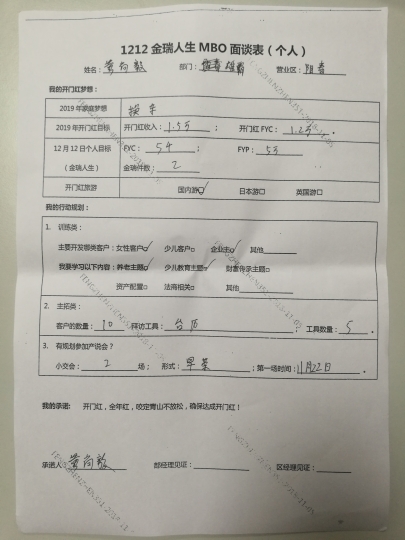 1212 金瑞人生 MBO 面谈表（个人）
姓名： 部门： 营业区：
我的开门红梦想：
2019 年家庭梦想 换车
2019 年开门红目标 开门红收入：1.5万； 开门红 FYC： 1.2万。
12 月 12 日个人目标 FYC： 5千； FYP： 5万
（金瑞人生） 金瑞件数： 2
开门红旅游 国内游☑ 日本游□ 英国游□
我的行动规划：
1. 训练类：
主要开发哪类客户：女性客户☑ 少儿客户□ 企业主☑ 其他
我要学习以下内容：养老主题☑ 少儿教育主题☑ 财富传承主题□
资产配置□ 法商相关□ 其他
2. 主拓类：
客户的数量： 10 拜访工具： 台历 ； 工具数量： 5 。
3. 有规划参加产说会？
小交会： 2 场； 形式： 早茶 ；第一场时间：11月22日 。
我的承诺： 开门红，全年红，咬定青山不放松，确保达成开门红！
承诺人： 部经理见证： 区经理见证：